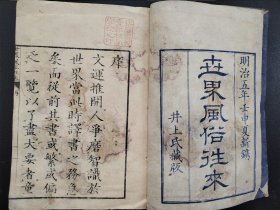 明治五年壬申夏新鐫
世界風俗往來
井上氏藏版
序
文運推開人爭磨智識於
世界當此時譯書之務急
矣而從前其書或繁或偏
乏一覽以了盡大要者童